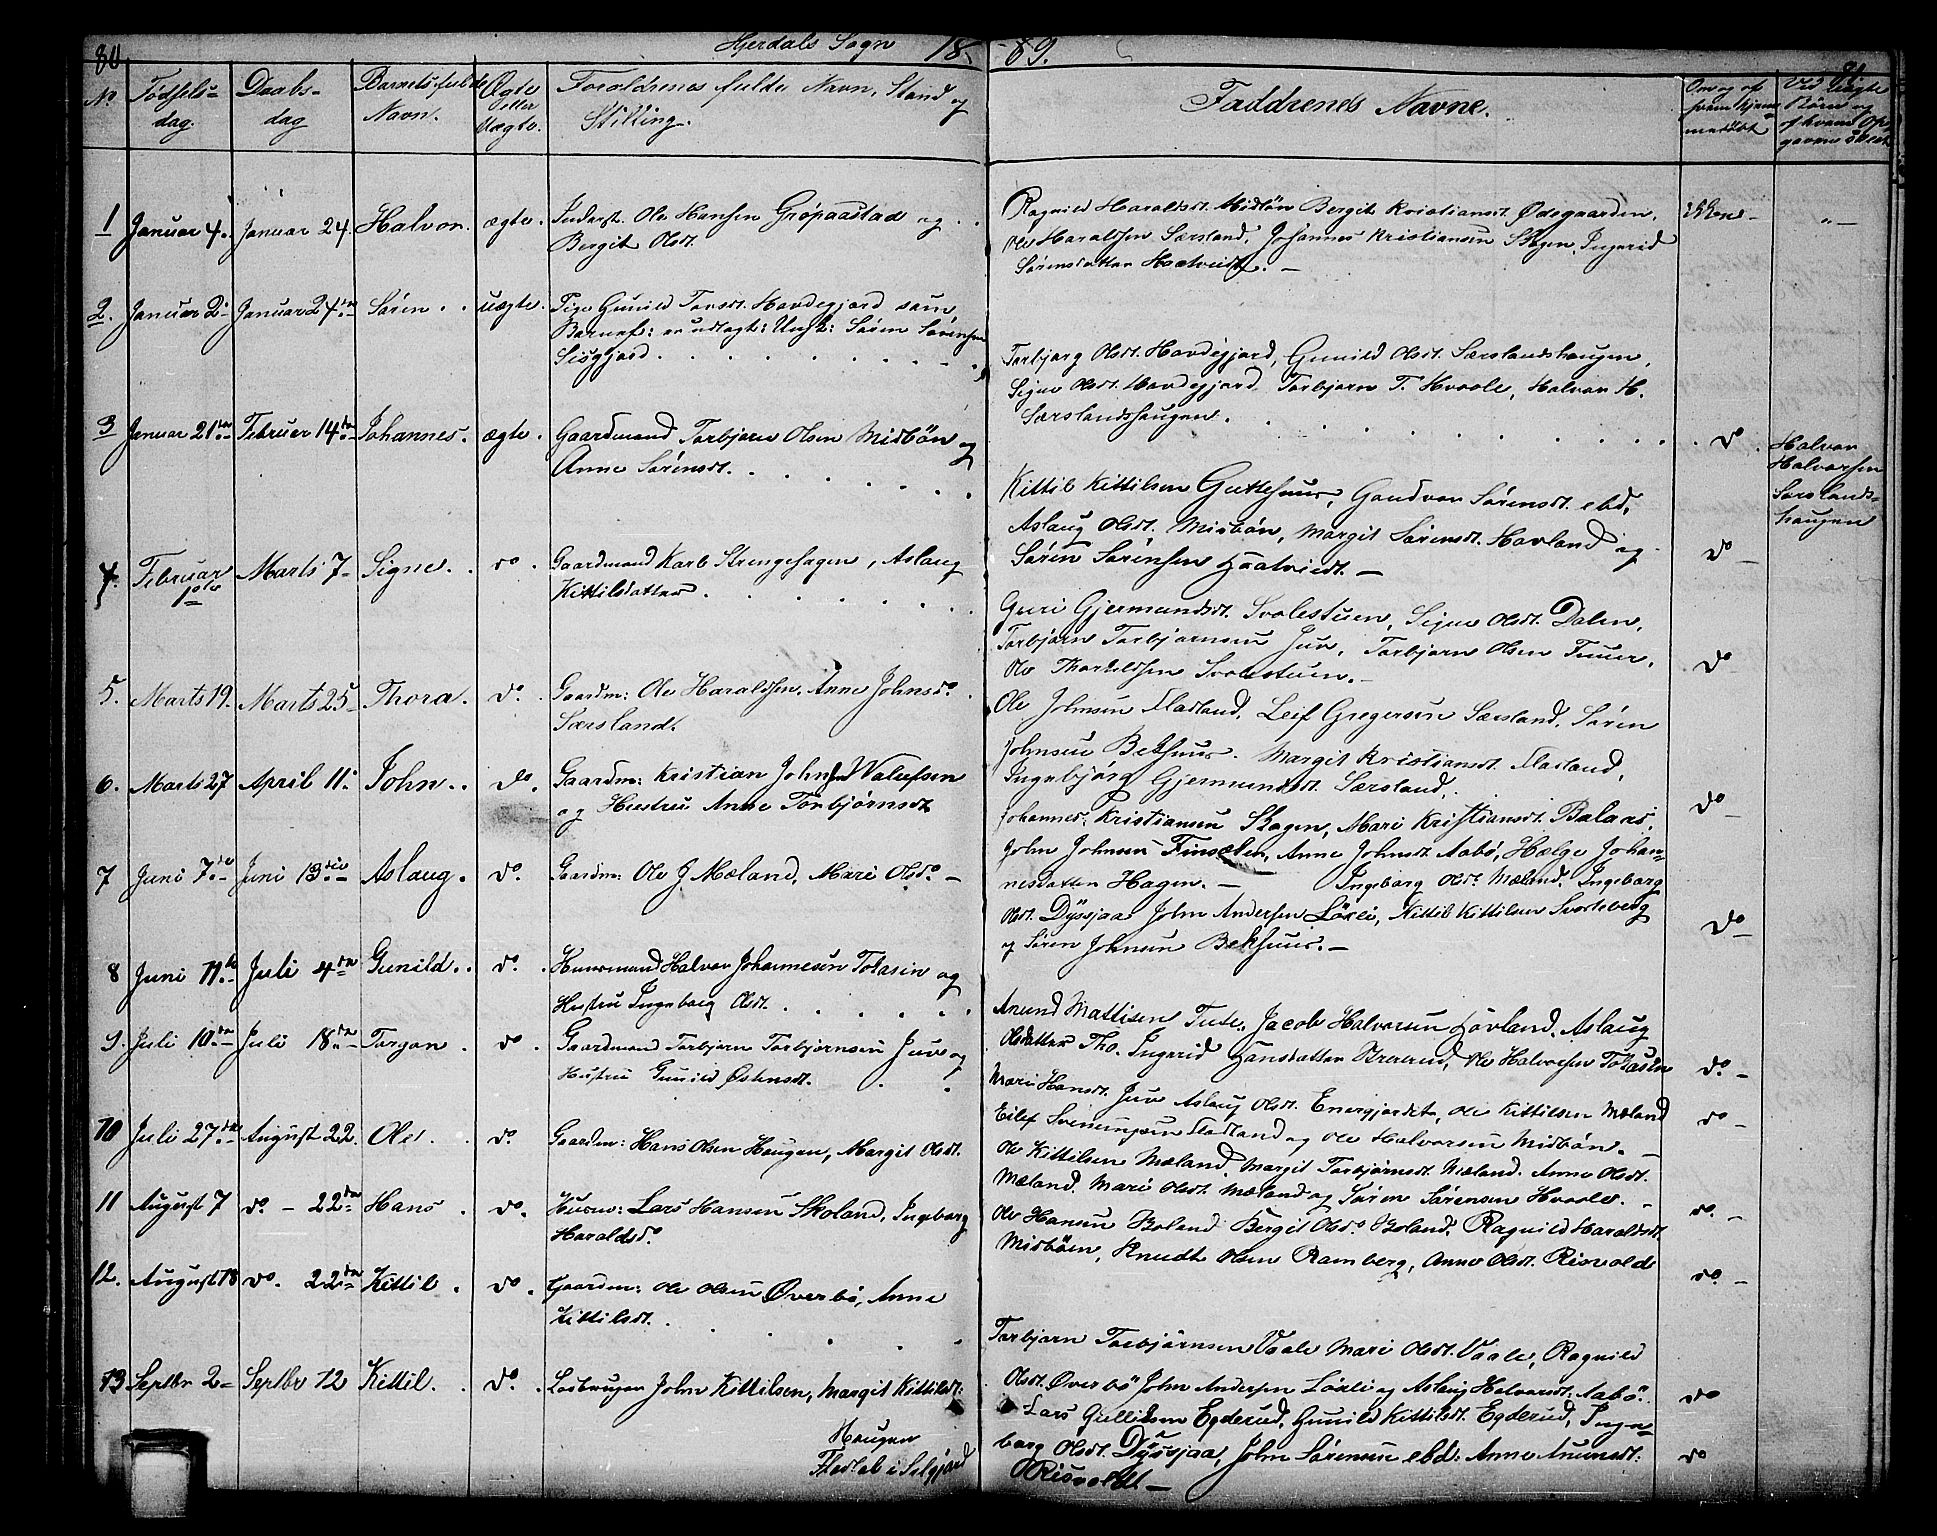 80
Hjerdals Sogn 18 89.
81.
No
Fødsels=
dag.
Daabs=
dag
Barnets fulde
Navn.
Ægte
eller
Uægte.
Foroldrenes fulde Navn, Stand og
Stilling.
Faddrenes Navne.
Om og af
hvem hjem
medöbt
Ved Uægte
Börn og
af hvem Op
gaven skeet
1 Januar 4. Januar 24 Halvor. ægte. Inderst Ole Hansen Grópaastad og
Bergit Olsdt.
Ragnild Haraldsdt. Midbön Bergit Kristiansdt Ødegaarden, Ikke
Ole Haraldsen Sœrsland, Johannes Kristiansen Skogen, Ingerid
Sörensdatter Haatveidt. —
2. Januar 2- Januar 24de Sören. uægte. Pige Gunild Torsdt. Hovdegjord som
Barnef: er udlagt: Ungk: Sören Sörensen
Sisgjord.
Torbjørg Olsdt. Hovdegjord, Gunild Olsdt. Sœrslandshaugen,
Signe Olsdt. Hovdegjord, Torbjørn T. Hvaale, Halvor H.
Sœrslandshaugen. do
Halvor
Halvorsen
Sœrslands=
haugen
3 Januar 21de Februar 14de Johannes. ægte. Gaardmand Torbjørn Olsen Midbön og
Anne Sörensdt.
Kittil Kittilsen Guttehuus, Gundvor Sörensdt. ebd,
Aslaug Olsdt. Midbön, Margit Sörensdt. Hovland og
Sören Sörensen Haatviedt. — do
4. Februar
1ste Marts 7- Signe. do. Gaardmand Karl Strengehagen, Aslaug
Kittilsdatter.
Guri Gjermundsdt. Svolestuen, Signe Olsdt. Dalen,
Torbjørn Torbjørnsen Juv, Torbjørn Olsen Tuuer,
Ole Thorkildsen Svolestuen. — do
5. Marts 19. Marts 25 Thora. do. Gaardm: Ole Haraldsen, Anne Johnsd.
Sœrsland.
Ole Johnsen Fladland, Leif Gregersen Sœrsland, Sören
Johnsen Bekhuus. Margit Kristiansdt. Fladland,
Ingebjörg Gjermundsdt Sœrsland. do
6. Marts 27 April 11. John. do. Gaardm: Kristian Johnsen Waleksen
og Hustru Anne Torbjørnsdt
Johannes Kristiansen Skogen, Mari Kristiansdt. Balaas,
John Johnsen Finsœlen, Anne Johnsdt. Aabö, Hœlge Johan=
nesdatter Hagen. —
7 Juni 7de Juni 13de Aslaug. do. Gaardm: Ole J. Mœland, Mari Olsd. —
Ingeborg Olsd. Mœland, Ingeborg
Olsdt. Dyssjaa John Andersen Löxlö, Kittil Kittilsen Svorteberg
og Sören Johnsen Bekhuus. — do
8 Juni 11te Juli 4de Gunild. do. Huusmand Halvor Johannesen Tolasin og
Hustru Ingeborg Olsdt.
Anund Mattisen Tude, Jacob Halvorsen Hovland, Aslaug
Olsdatter Tho, Ingerid Hansdatter Strerud, Ole Halvorsen Tolasin do. -
9. Juli 10de Juli 18de Torgon. do. Gaardmand Torbjørn Torbjørnsen Juv og
Hustru Gunild Östensdt.
Mari Hansdt. Juv Aslaug Olsdt. Energjordet, Ole Kittilsen Mœland
Eilef Sveningsen Fladland og Ole Halvorsen Midbön. — do -
10 Juli 27de August 22. Ole. do. Gaardm: Hans Olsen Haugen, Margit Olsdt.
Ole Kittilsen Mœland, Margit Torbjørnsdt. Mœland. Anne Olsdt.
Mœland. Mari Olsdt. Mœland og Sören Sörensen Hvaale. — do. -
11 August 7 do. - 22de Hans. do. Huusm: Lars Hansen Skoland, Ingeborg
Haraldsd.
Ole Hansen Boland Bergit Olsd. Boland, Ragnild Haraldsdt.
Midböen, Knudt Olsen Ramberg, Anne Olsdt. Risvold do. -
12. August 18 do. 22de Kittil. do. Gaardm: Ole Olsen Øverbö, Anne
Kittilsdt.
Torbjørn Torbjørnsen Vaale Mari Olsdt. Vaale, Ragnild
Olsdt. Øverbö John Andersen Löxlö og Aslaug Halvorsdt. Aabö. do
13 Septbr 2- Septbr 12 Kittil. do. Losbruger John Kittilsen, Margit Kittilsdt:
Haugen
Flatlab i Selgjord
Lars Gjellidsen Egderud, Gunild Kittilsdt. Egderud, Inge=
borg Olsdt. Dyssjaa, John Sörensen ebd: Anne Anundsdt:
Risvoldt — do